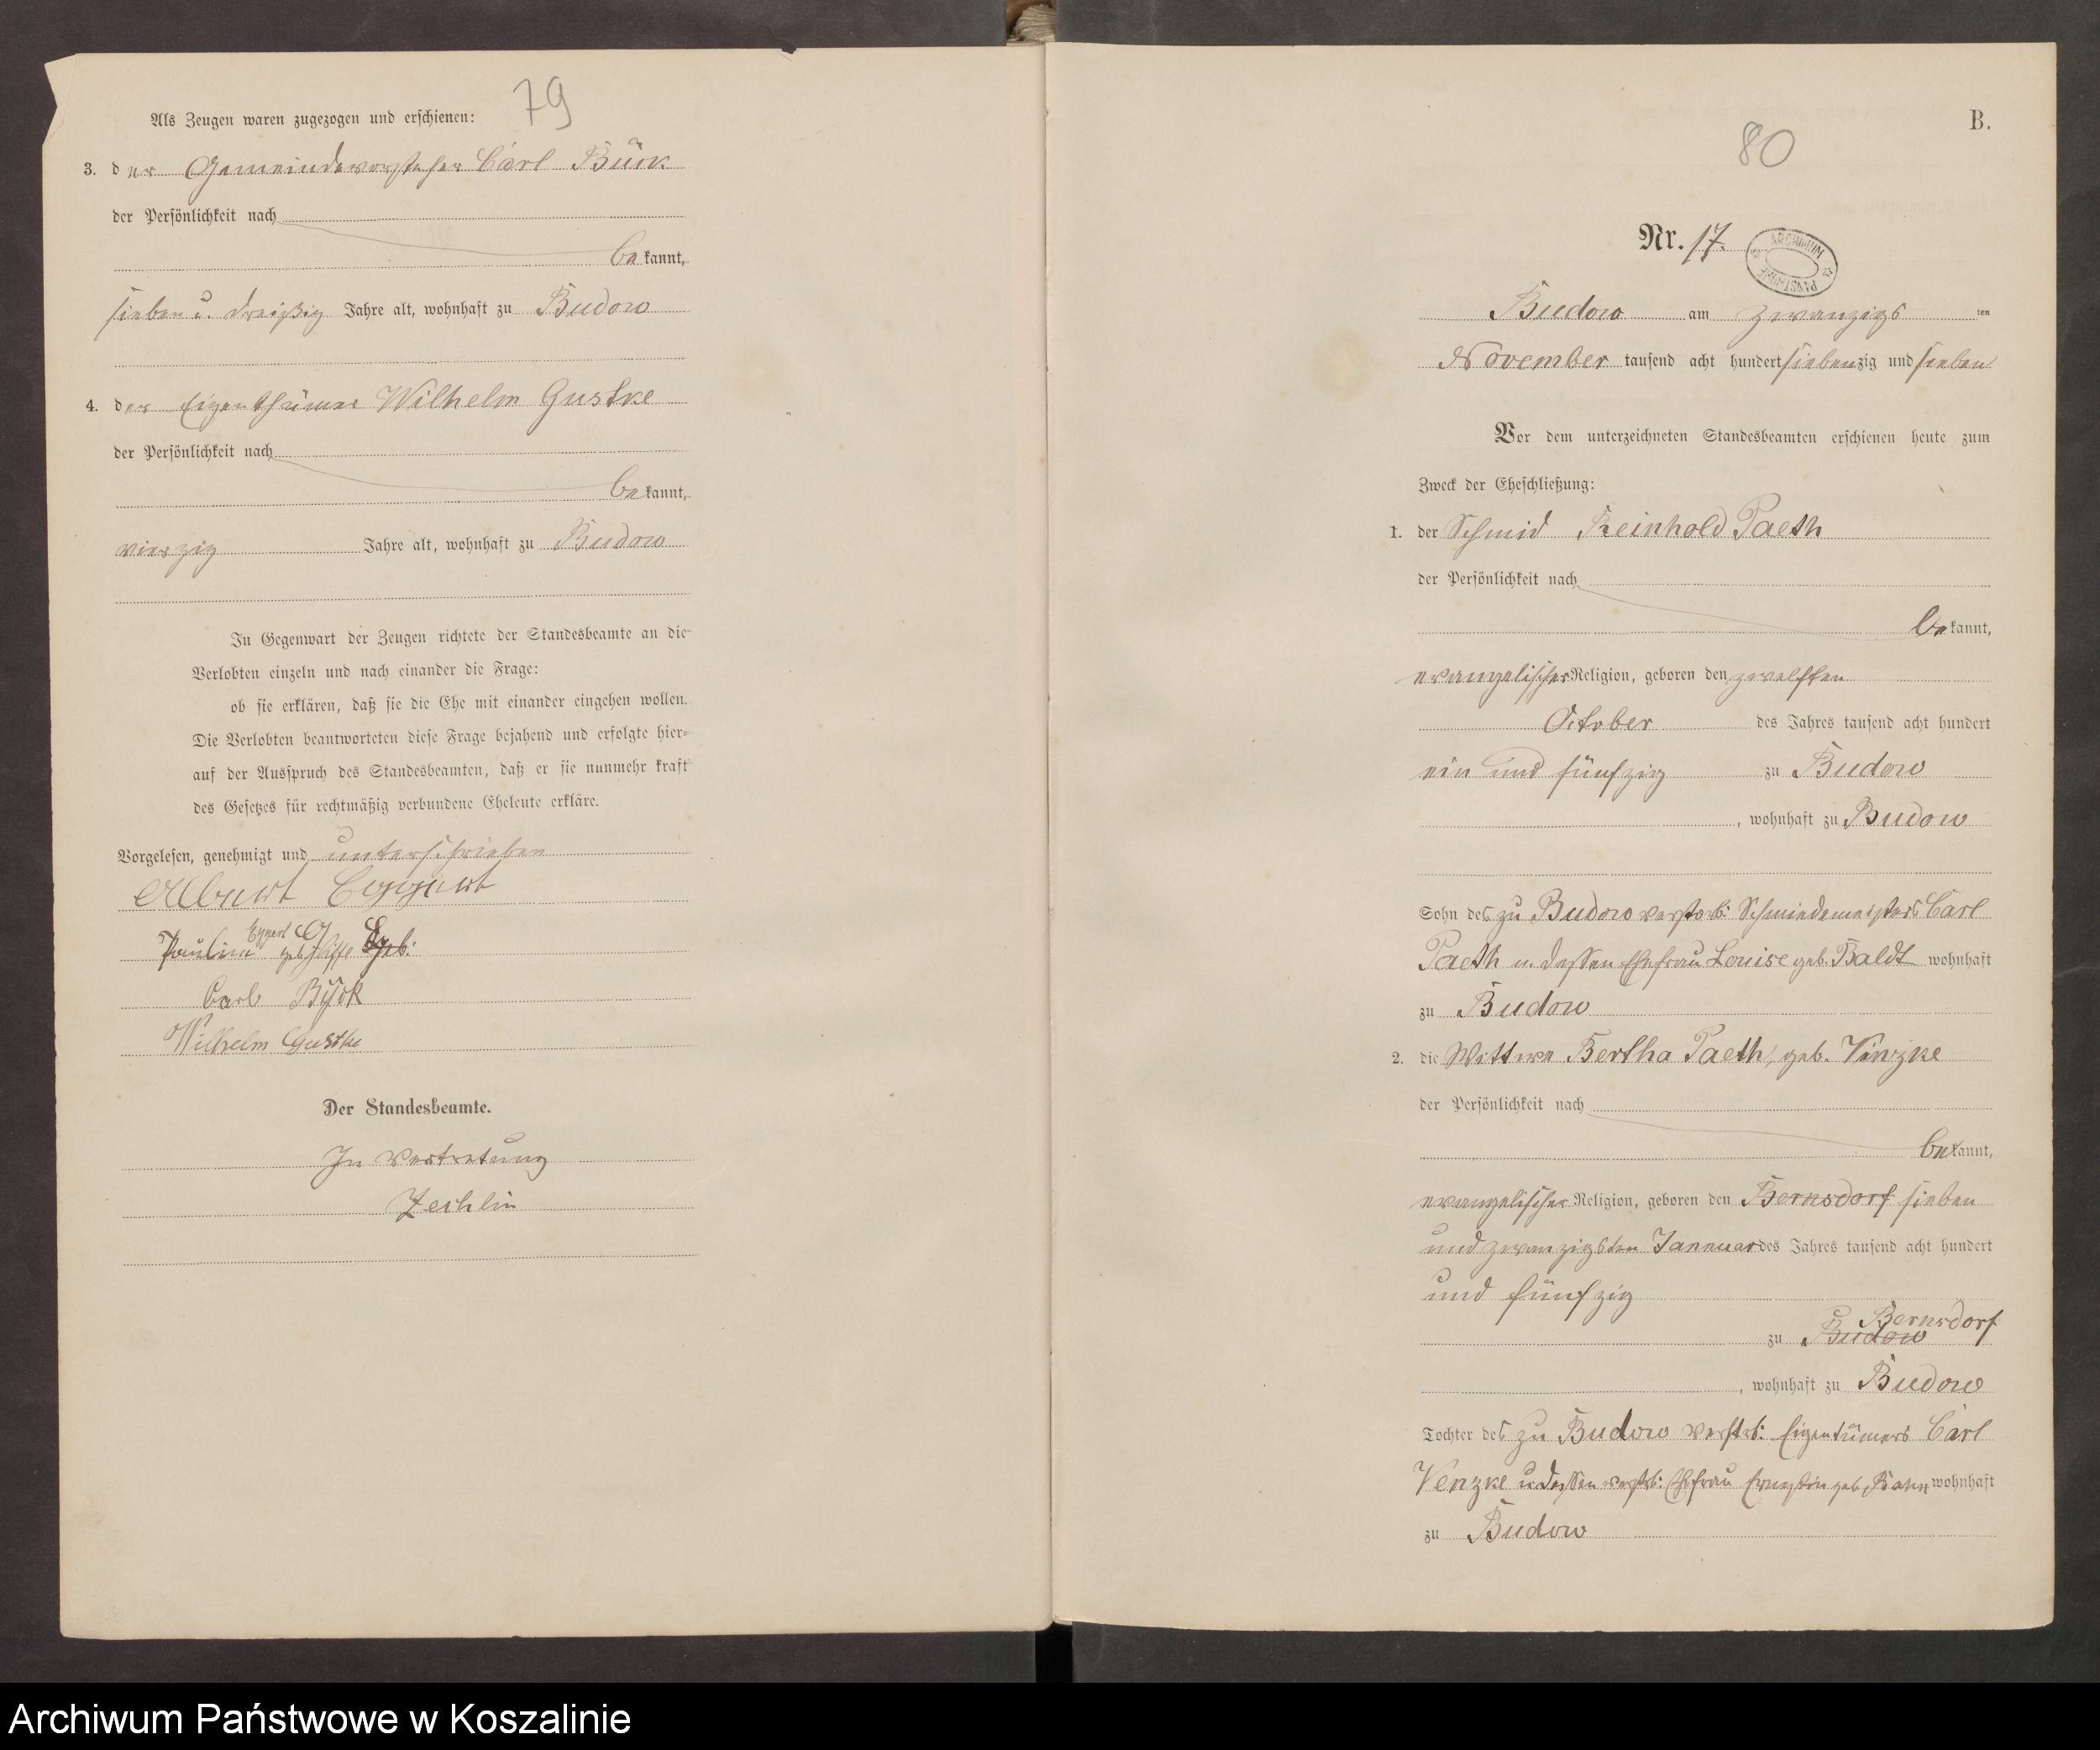 79
Als Zeugen waren zugezogen und erschienen:
3. der Gemeindevorsteher Carl Bück
der Persönlichkeit nach
bekannt,
sieben u. dreißig Jahre alt, wohnhaft zu Budow
4. der Eigenthümer Wilhelm Gustke
der Persönlichkeit nach
bekannt,
vierzig Jahre alt, wohnhaft zu Budow
In Gegenwart der Zeugen richtete der Standesbeamte an die
Verlobten einzeln und nach einander die Frage:
ob sie erklären, daß sie die Ehe mit einander eingehen wollen.
Die Verlobten beantworteten diese Frage bejahend und erfolgte hier-
auf der Ausspruch des Standesbeamten, daß er sie nunmehr kraft
des Gesetzes für rechtmäßig verbundene Eheleute erkläre.
Vorgelesen, genehmigt und unterschrieben
Albert Eggert
Pauline Eggert geb.
Carl Bück
Wilhelm Gustke
Der Standesbeamte.
In Vertretung
Zechlin
B.
80
Nr. 17.
ARCHIWUM PAŃSTWOWE
Budow am zwanzigsten
November tausend acht hundert siebenzig und sieben
Vor dem unterzeichneten Standesbeamten erschienen heute zum
Zweck der Eheschließung:
1. der Schmid Reinhold Paeth
der Persönlichkeit nach
bekannt,
evangelischer Religion, geboren den zwölften
October des Jahres tausend acht hundert
ein und fünfzig zu Budow
, wohnhaft zu Budow
Sohn des zu Budow verstorb: Schmiedemeisters Carl
Paeth u. dessen Ehefrau Louise geb. Baldt wohnhaft
zu Budow
2. die Wittwe Bertha Paeth, geb. Venzke
der Persönlichkeit nach
bekannt,
evangelischer Religion, geboren den Bernsdorf sieben
und zwanzigsten Januar des Jahres tausend acht hundert
und fünfzig
Bernsdorf
zu Budow
, wohnhaft zu Budow
Tochter des zu Budow verstb: Eigentümers Carl
Venzke u. dessen verstb: Ehefrau Ernestin geb. wohnhaft
zu Budow
Archiwum Państwowe w Koszalinie